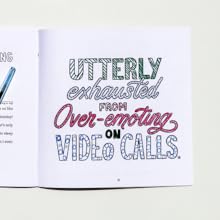 UTTERLY
exhausted
FROM
Over-emoting
ON
VIDEO CALLS.